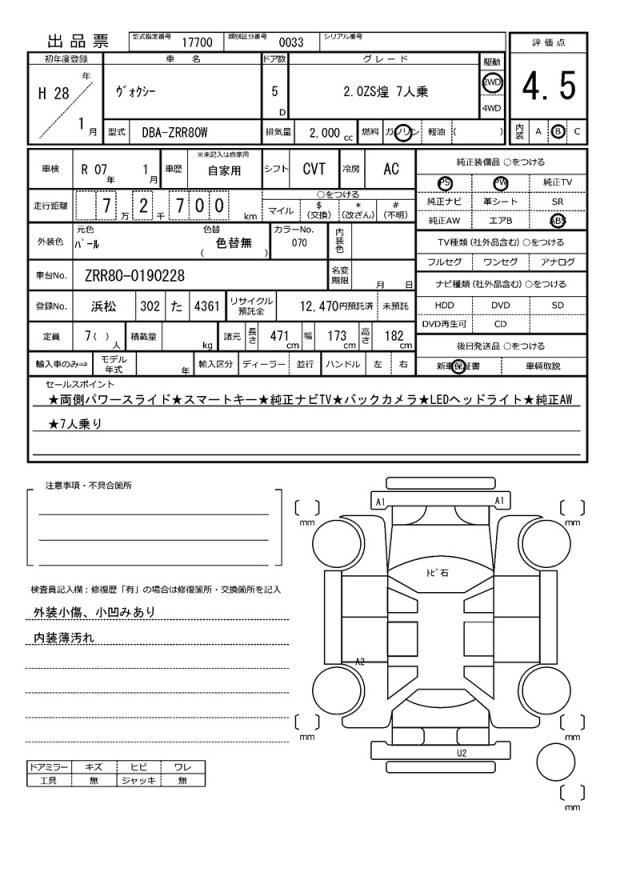 出品票 型式指定番号 17700 類別区分番号 0033 シリアル番号
評価点
4.5
内装 A B C
初年度登録 車名 ドア数 グレード 駆動
H 28 年 1 月
ヴォクシー 5 D 2.0ZS煌 7人乗 2WD
4WD
型式 DBA-ZRR80W 排気量 2,000 cc 燃料 ガソリン 軽油 ( )
車検 R 07 年 1 月 車歴 ※未記入は自家用 自家用 シフト CVT 冷房 AC
走行距離 7 万 2 千 7 0 0 km ○をつける
マイル $ (交換) * (改ざん) # (不明)
外装色 元色 パール 色替 ( 色替無 ) カラーNo. 070 内装色
車台No. ZRR80-0190228 名変期限 月 日
登録No. 浜松 302 た 4361 リサイクル預託金 12,470円預託済 未預託
定員 7( ) 人 積載量 kg 諸元 長さ 471 cm 幅 173 cm 高さ 182 cm
輸入車のみ⇒ モデル年式 年 輸入区分 ディーラー 並行 ハンドル 左 右
純正装備品 ○をつける
PS PW 純正TV
純正ナビ 革シート SR
純正AW エアB ABS
TV種類 (社外品含む) ○をつける
フルセグ ワンセグ アナログ
ナビ種類 (社外品含む) ○をつける
HDD DVD SD
DVD再生可 CD
後日発送品 ○をつける
新車保証書 車輌取説
セールスポイント
★両側パワースライド★スマートキー★純正ナビTV★バックカメラ★LEDヘッドライト★純正AW
★7人乗り
注意事項・不具合箇所
検査員記入欄：修復歴「有」の場合は修復箇所・交換箇所を記入
外装小傷、小凹みあり
内装薄汚れ
ドアミラー キズ ヒビ ワレ
工具 無 ジャッキ 無
[ ] mm A1 A1 [ ] mm
ﾄﾋﾞ石
A2
[ ] mm [ ] mm
U2
[ ] mm